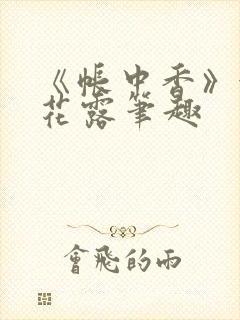 《帳中香》
花露筆趣
會飛的雨